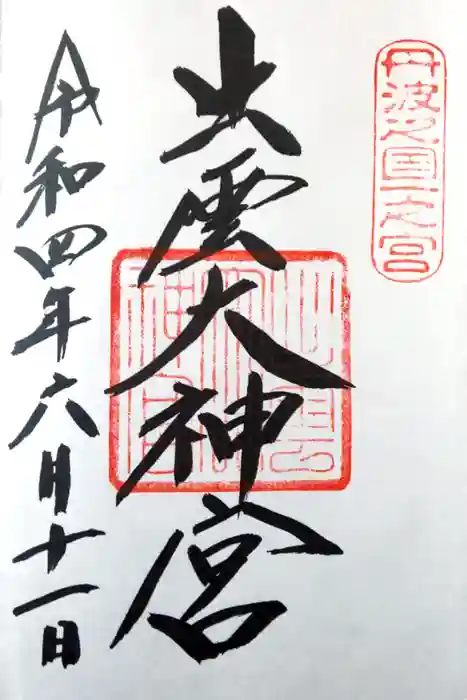 丹波之國一之宮
出雲大神宮
令和四年六月十一日